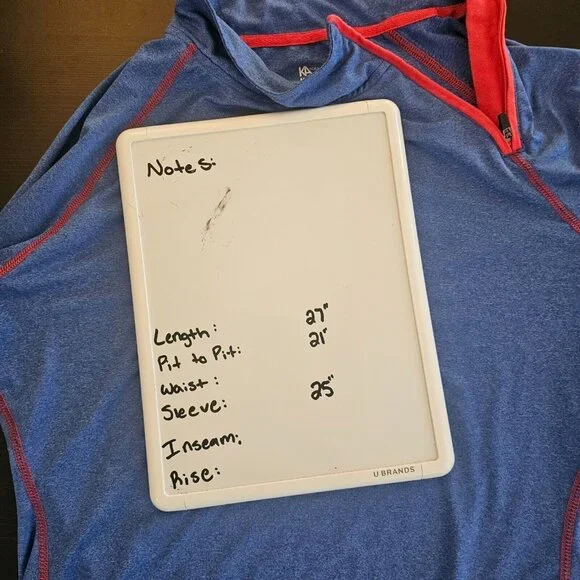 KA
Notes:
Length: 27"
Pit to Pit: 21"
Waist:
Sleeve: 25"
Inseam:
Rise:
U BRANDS